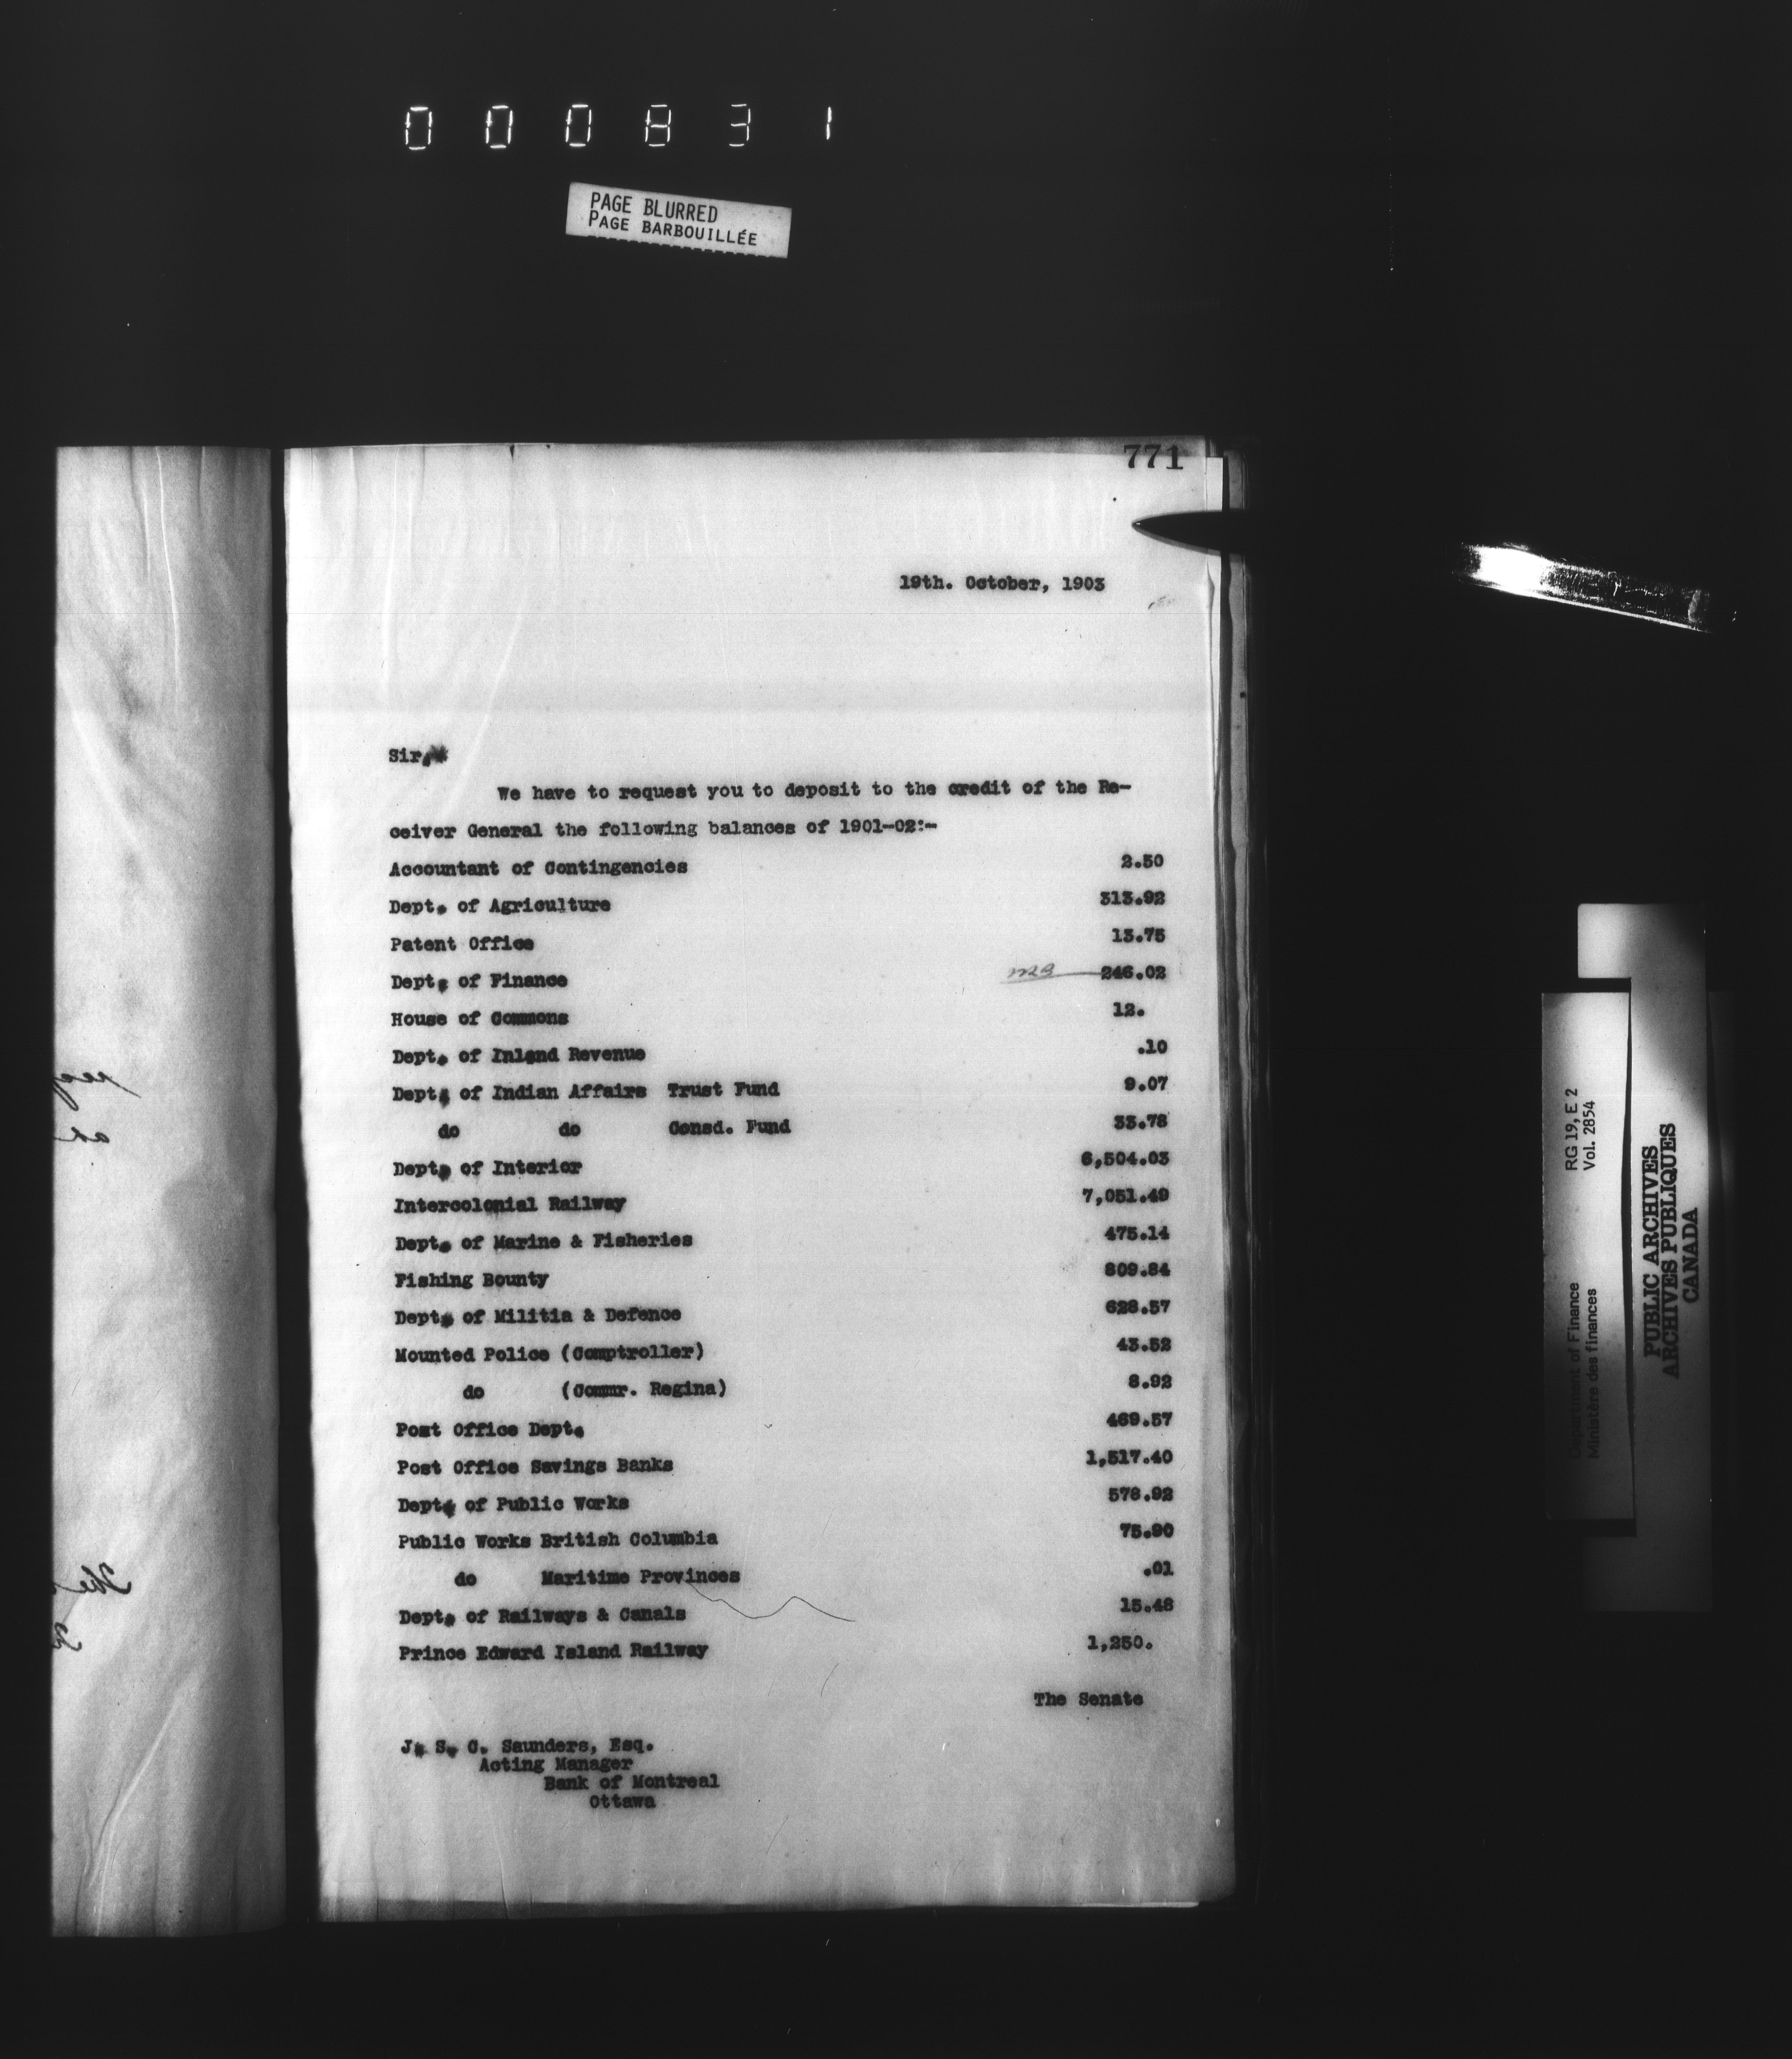 000831
PAGE BLURRED
PAGE BARBOUILLÉE
771
19th. October, 1903
Sir,
We have to request you to deposit to the credit of the Re-
ceiver General the following balances of 1901-02:-
Accountant of Contingencies 2.50
Dept. of Agriculture 313.92
Patent Office 13.75
Dept. of Finance 246.02
House of Commons 12.
Dept. of Inland Revenue .10
Dept. of Indian Affairs Trust Fund 9.07
do do Consd. Fund 33.78
Dept. of Interior 6,504.03
Intercolonial Railway 7,051.49
Dept. of Marine & Fisheries 475.14
Fishing Bounty 809.84
Dept. of Militia & Defence 628.57
Mounted Police (Comptroller) 43.52
do (Commr. Regina) 8.92
Post Office Dept. 469.57
Post Office Savings Banks 1,517.40
Dept. of Public Works 578.92
Public Works British Columbia 75.90
do Maritime Provinces .01
Dept. of Railways & Canals 15.48
Prince Edward Island Railway 1,250.
The Senate
J. S. C. Saunders, Esq.
Acting Manager
Bank of Montreal
Ottawa
Department of Finance RG 19, E 2
Ministère des finances Vol. 2854
PUBLIC ARCHIVES
ARCHIVES PUBLIQUES
CANADA